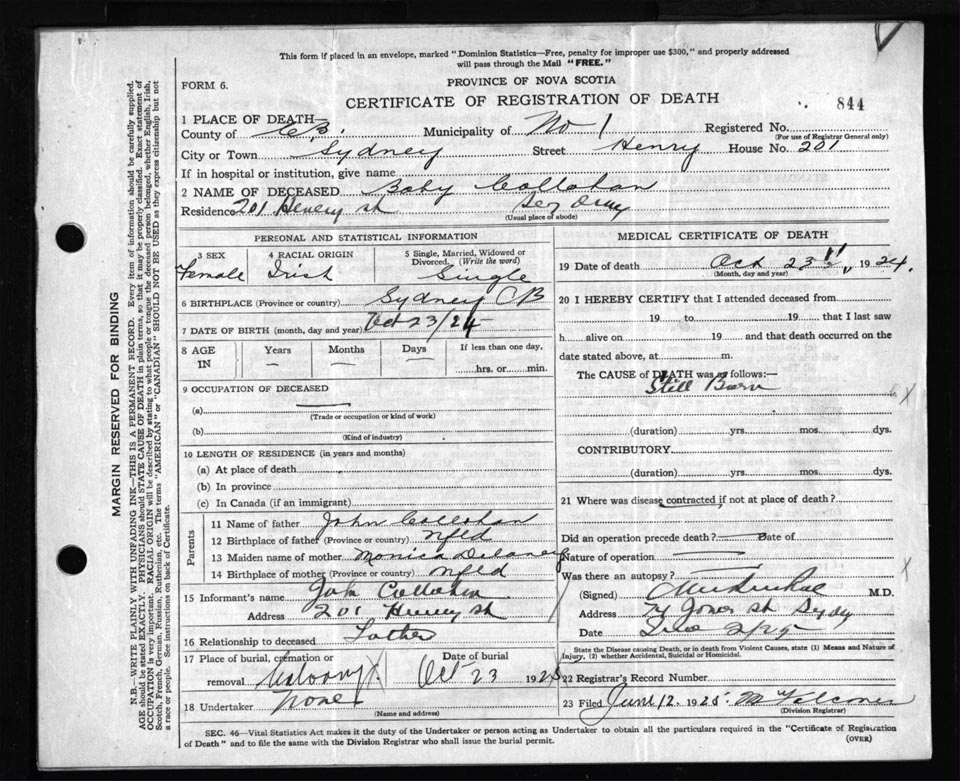 This form if placed in an envelope, marked "Dominion Statistics—Free, penalty for improper use $300," and properly addressed
will pass through the Mail "FREE."
FORM 6.
PROVINCE OF NOVA SCOTIA
CERTIFICATE OF REGISTRATION OF DEATH
844
1 PLACE OF DEATH—
County of C.B. Municipality of No 1 Registered No.
(For use of Registrar General only)
City or Town Sydney Street Henry House No. 201
If in hospital or institution, give name
2 NAME OF DECEASED Baby Callahan
Residence 201 Henery St
(Usual place of abode)
PERSONAL AND STATISTICAL INFORMATION
3 SEX Female
4 RACIAL ORIGIN Irish
5 Single, Married, Widowed or Divorced. (Write the word) Single
6 BIRTHPLACE (Province or country) Sydney CB
7 DATE OF BIRTH (month, day and year) Oct 23/24
8 AGE IN Years — Months — Days — If less than one day, hrs. or min.
9 OCCUPATION OF DECEASED
(a) —
(Trade or occupation or kind of work)
(b)
(Kind of industry)
10 LENGTH OF RESIDENCE (in years and months)
(a) At place of death
(b) In province
(c) In Canada (if an immigrant)
Parents
11 Name of father John Callahan
12 Birthplace of father (Province or country) Nfld
13 Maiden name of mother Monica Delaney
14 Birthplace of mother (Province or country) Nfld
15 Informant's name John Callahan
Address 201 Henery St
16 Relationship to deceased Father
17 Place of burial, cremation or removal Calvary
Date of burial Oct 23 192
18 Undertaker None
(Name and address)
MEDICAL CERTIFICATE OF DEATH
19 Date of death Oct 23 1924.
(Month, day and year)
20 I HEREBY CERTIFY that I attended deceased from
19 to 19 that I last saw
h alive on 19 and that death occurred on the
date stated above, at m.
The CAUSE OF DEATH was as follows:—
Still Born
(duration) yrs. mos. dys.
CONTRIBUTORY
(duration) yrs. mos. dys.
21 Where was disease contracted if not at place of death?
Did an operation precede death? — Date of
Nature of operation —
Was there an autopsy?
(Signed) M.D.
Address St Sydney
Date
State the Disease causing Death, or in death from Violent Causes, state (1) Means and Nature of
Injury, (2) whether Accidental, Suicidal or Homicidal.
22 Registrar's Record Number
23 Filed June 12, 1925.
(Division Registrar)
SEC. 46—Vital Statistics Act makes it duty of the Undertaker or person acting as Undertaker to obtain all the particulars required in the "Certificate of Registration
of Death" and to file the same with the Division Registrar who shall issue the burial permit.
(OVER)
MARGIN RESERVED FOR BINDING
N.B.—WRITE PLAINLY WITH UNFADING INK—THIS IS A PERMANENT RECORD. Every item of information should be carefully supplied.
AGE should be stated EXACTLY. PHYSICIANS should STATE CAUSE OF DEATH in plain terms, so that it may be properly classified. Exact statement of
OCCUPATION is very important. RACIAL ORIGIN will be described by stating to what people or tongue the deceased person belonged, whether English, Irish,
Scotch, French, German, Russian, Ruthenian, etc. The terms "AMERICAN" or "CANADIAN" SHOULD NOT BE USED as they express citizenship but not
a race or people. See instructions on back of Certificate.